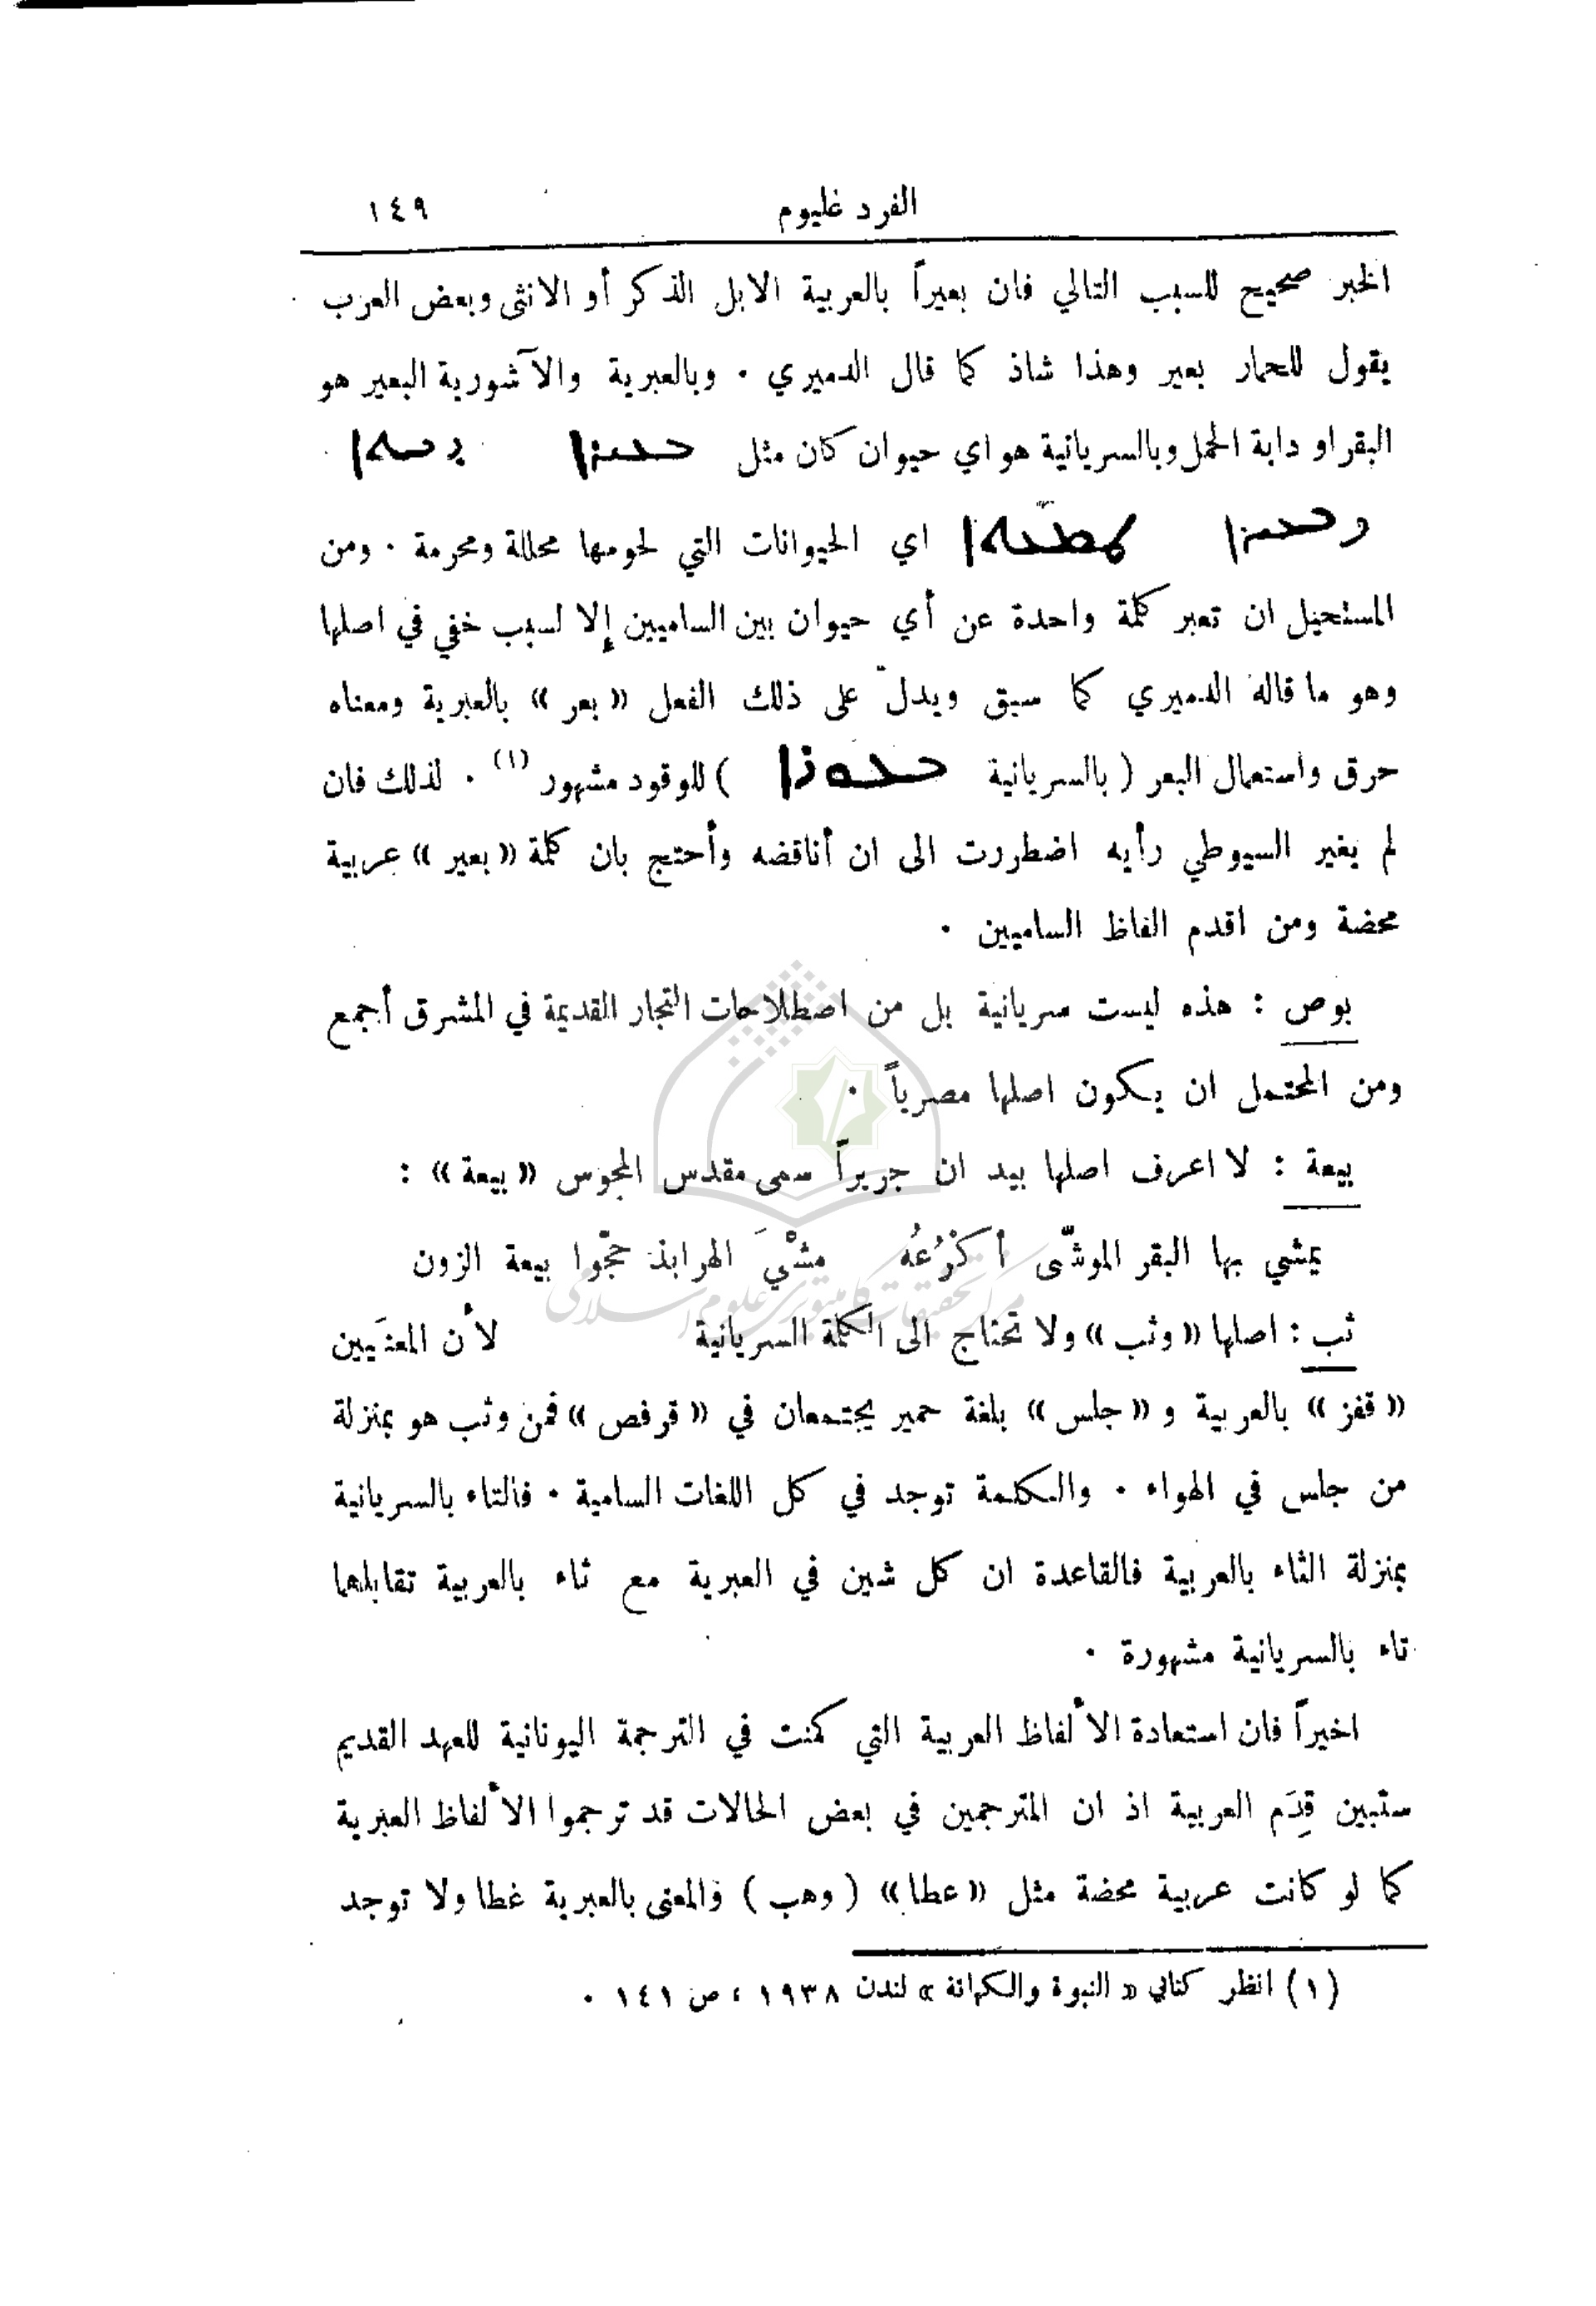 الفرد غليوم ١٤٩
الخبر صحيح للسبب التالي فان بعيراً بالعربية الابل الذكر أو الانثى وبعض العرب
يقول للحمار بعير وهذا شاذ كما قال الدميري . وبالعبرية والآشورية البعير هو
البقر او دابة الحمل وبالسريانية هو اي حيوان كان مثل ܒܥܝܪܐ
اي الحيوانات التي لحومها محللة ومحرمة . ومن
المستحيل ان تعبر كلمة واحدة عن أي حيوان بين الساميين إلا لسبب خفي في اصلها
وهو ما قاله الدميري كما سبق ويدلّ على ذلك الفعل « بعر » بالعبرية ومعناه
حرق واستعمال البعر ( بالسريانية ܒܥܘܪܐ ) للوقود مشهور (١) . لذلك فان
لم يغير السيوطي رأيه اضطررت الى ان أناقضه وأحتج بان كلمة « بعير » عربية
محضة ومن اقدم الفاظ الساميين .
بوص : هذه ليست سريانية بل من اصطلاحات التجار القديمة في المشرق أجمع
ومن المحتمل ان يكون اصلها مصرياً .
بيعة : لا اعرف اصلها بيد ان جريراً سمى مقدس المجوس « بيعة » :
يمشي بها البقر الموشّى أكرُعُه مشْيَ الهرابذ حجّوا بيعة الزون
ثب : اصلها « وثب » ولا تحتاج الى الكلمة السريانية لأن المعنَيين
« قفز » بالعربية و « جلس » بلغة حمير يجتمعان في « قرفص » فمن وثب هو بمنزلة
من جلس في الهواء . والكلمة توجد في كل اللغات السامية . فالتاء بالسريانية
بمنزلة الثاء بالعربية فالقاعدة ان كل شين في العبرية مع ثاء بالعربية تقابلها
تاء بالسريانية مشهورة .
اخيراً فان استعادة الألفاظ العربية التي كمنت في الترجمة اليونانية للعهد القديم
ستبين قِدَم العربية اذ ان المترجمين في بعض الحالات قد ترجموا الألفاظ العبرية
كما لو كانت عربية محضة مثل « عطا » ( وهب ) والمعنى بالعبرية غطا ولا توجد
(١) انظر كتابي « النبوة والكهانة » لندن ١٩٣٨ ، ص ١٤١ .
مركز تحقيقات كامپيوتری علوم اسلامی